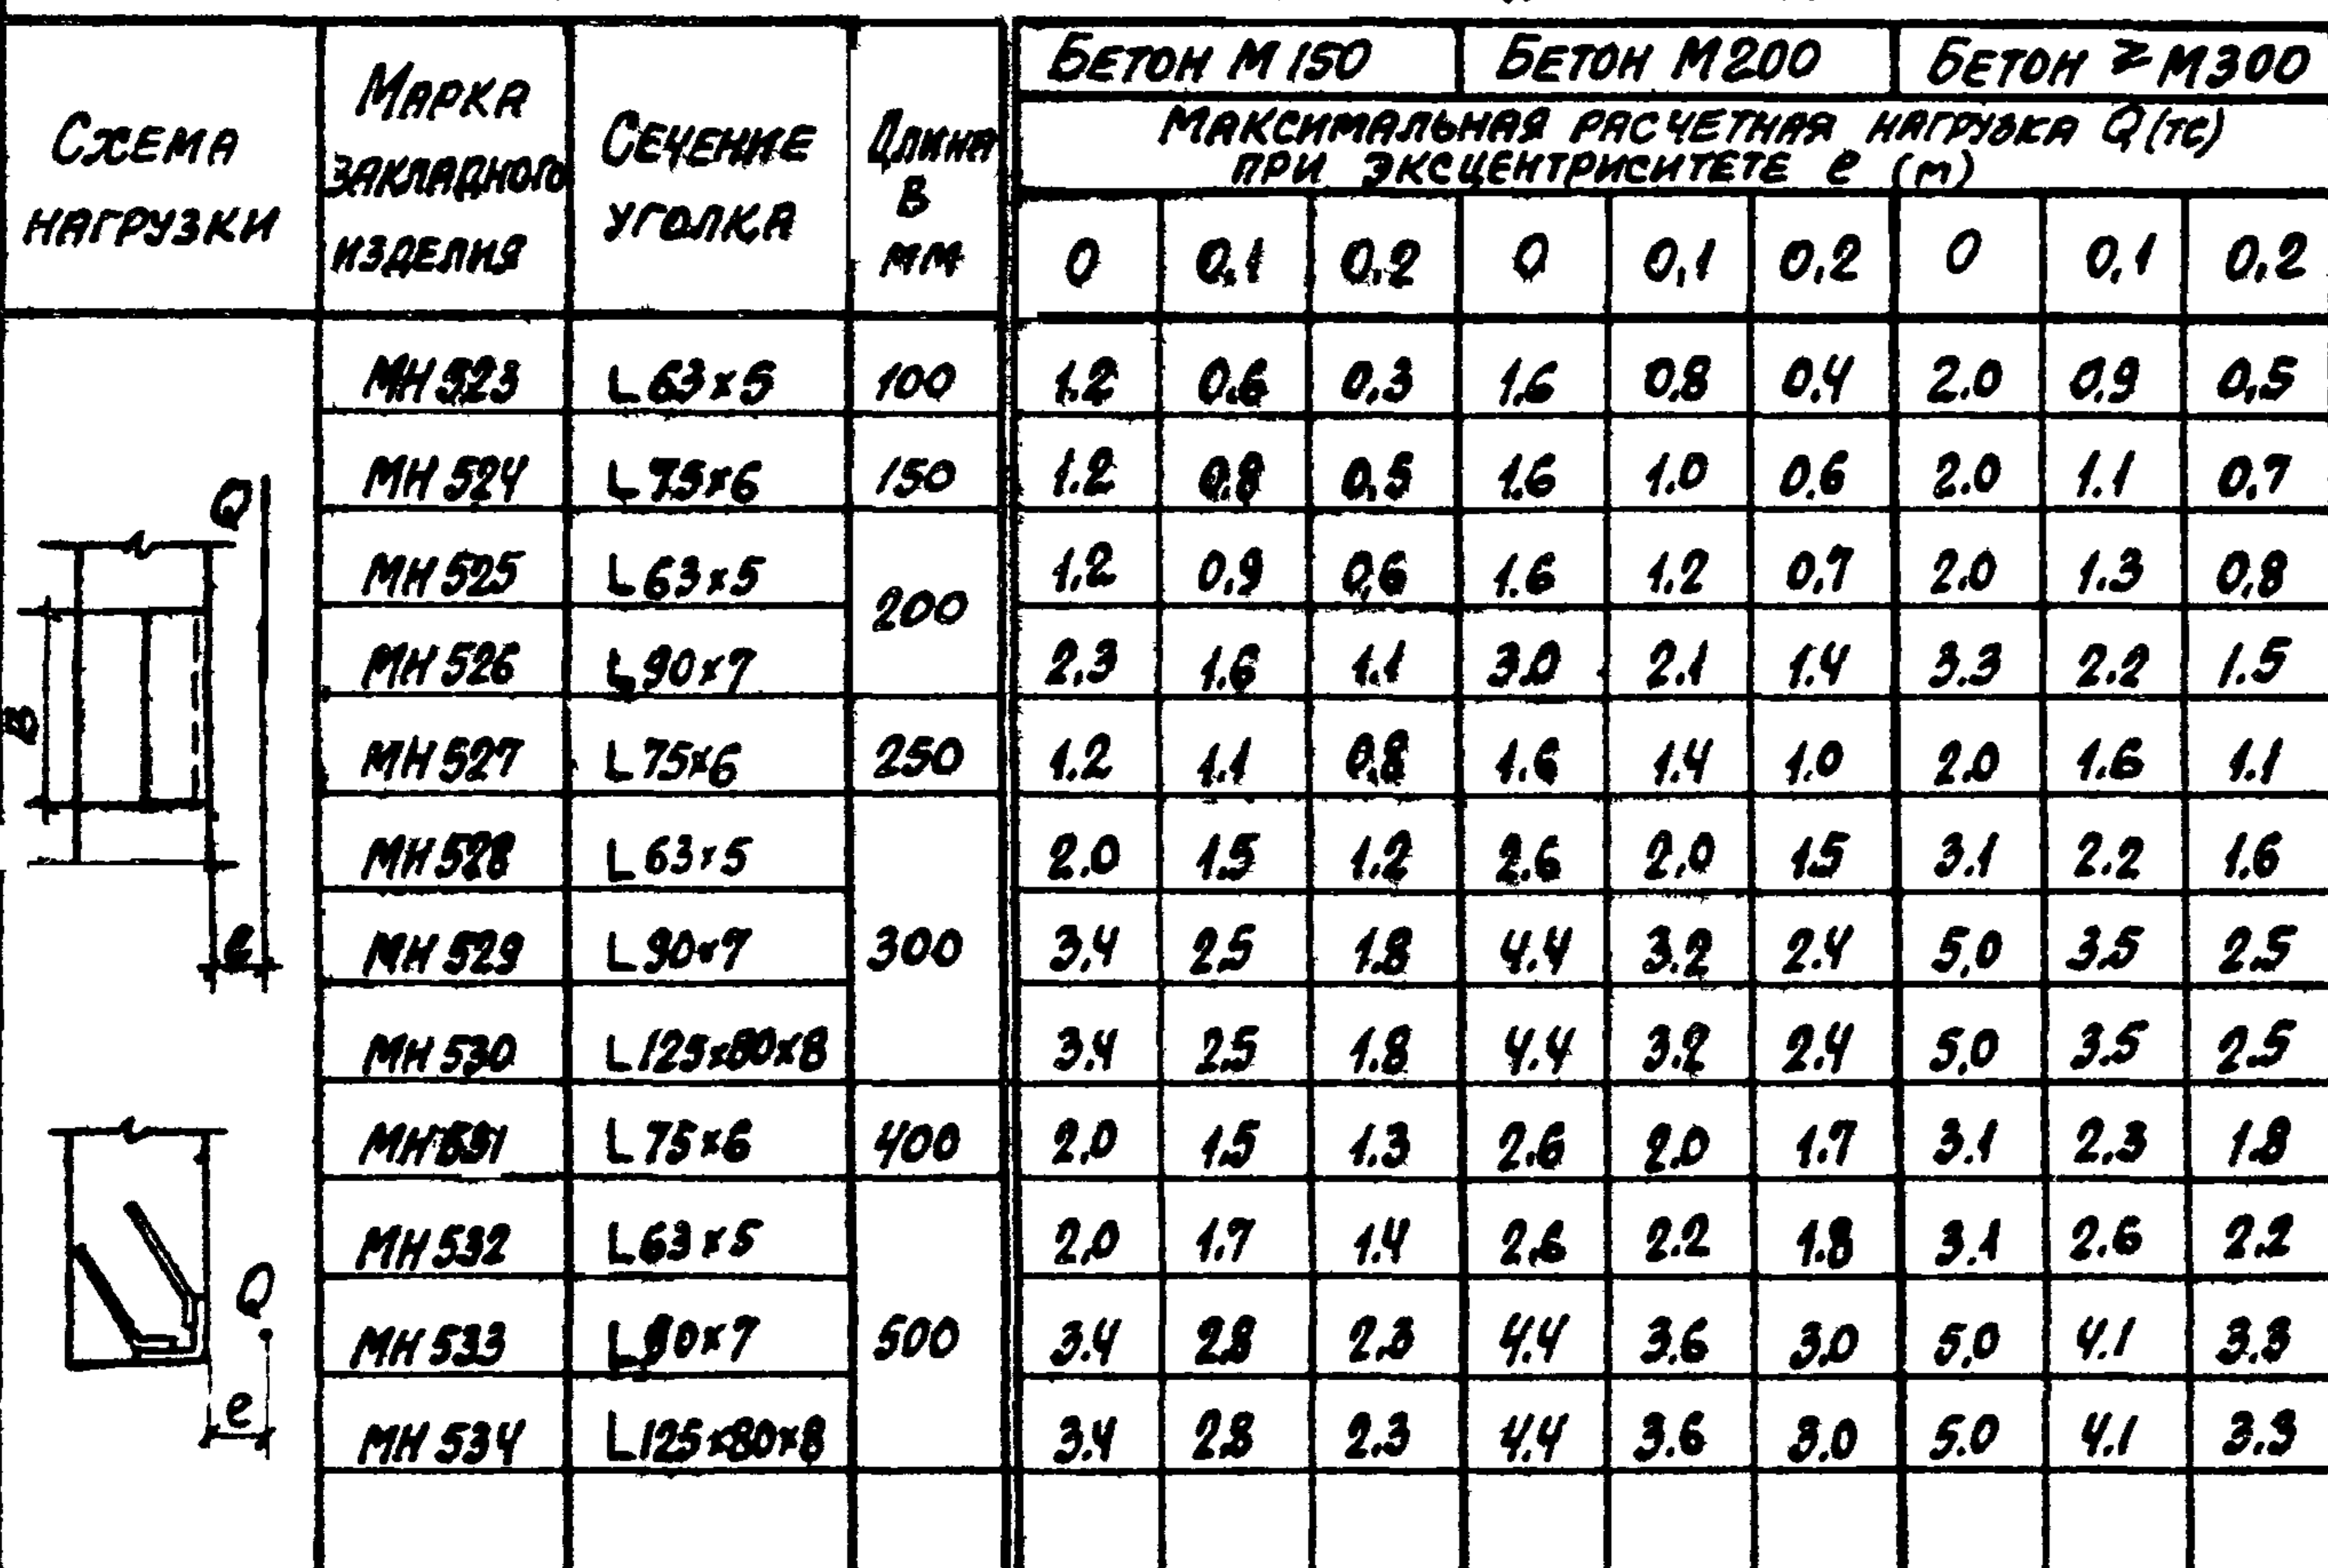 СХЕМА НАГРУЗКИ
МАРКА ЗАКЛАДНОГО ИЗДЕЛИЯ
СЕЧЕНИЕ УГОЛКА
ДЛИНА В ММ
БЕТОН М150 БЕТОН М200 БЕТОН ≥ М300
МАКСИМАЛЬНАЯ РАСЧЕТНАЯ НАГРУЗКА Q (ТС)
ПРИ ЭКСЦЕНТРИСИТЕТЕ e (м)
0 0,1 0,2 0 0,1 0,2 0 0,1 0,2
МН 523 L 63×5 100 1.2 0.6 0.3 1.6 0.8 0.4 2.0 0.9 0,5
МН 524 L 75×6 150 1.2 0.8 0,5 1.6 1.0 0.6 2.0 1.1 0,7
МН 525 L 63×5 200 1.2 0,9 0,6 1.6 1.2 0,7 2.0 1.3 0,8
МН 526 L 90×7 2,3 1.6 1.1 3.0 2.1 1.4 3.3 2.2 1.5
МН 527 L 75×6 250 1.2 1.1 0,8 1.6 1.4 1.0 2.0 1.6 1.1
МН 528 L 63×5 300 2.0 1.5 1.2 2.6 2,0 1.5 3.1 2.2 1.6
МН 529 L 90×7 3,4 2.5 1.8 4.4 3.2 2.4 5,0 3.5 2.5
МН 530 L 125×80×8 3.4 2.5 1.8 4.4 3.2 2.4 5,0 3.5 2.5
МН 531 L 75×6 400 2,0 1.5 1.3 2.6 2.0 1.7 3.1 2.3 1.8
МН 532 L 63×5 500 2,0 1.7 1.4 2.6 2.2 1.8 3.1 2.6 2.2
МН 533 L 90×7 3.4 2.8 2.3 4.4 3.6 3,0 5,0 4.1 3.3
МН 534 L 125×80×8 3.4 2.8 2.3 4.4 3.6 3.0 5.0 4.1 3.3
Q
В
e
Q
e